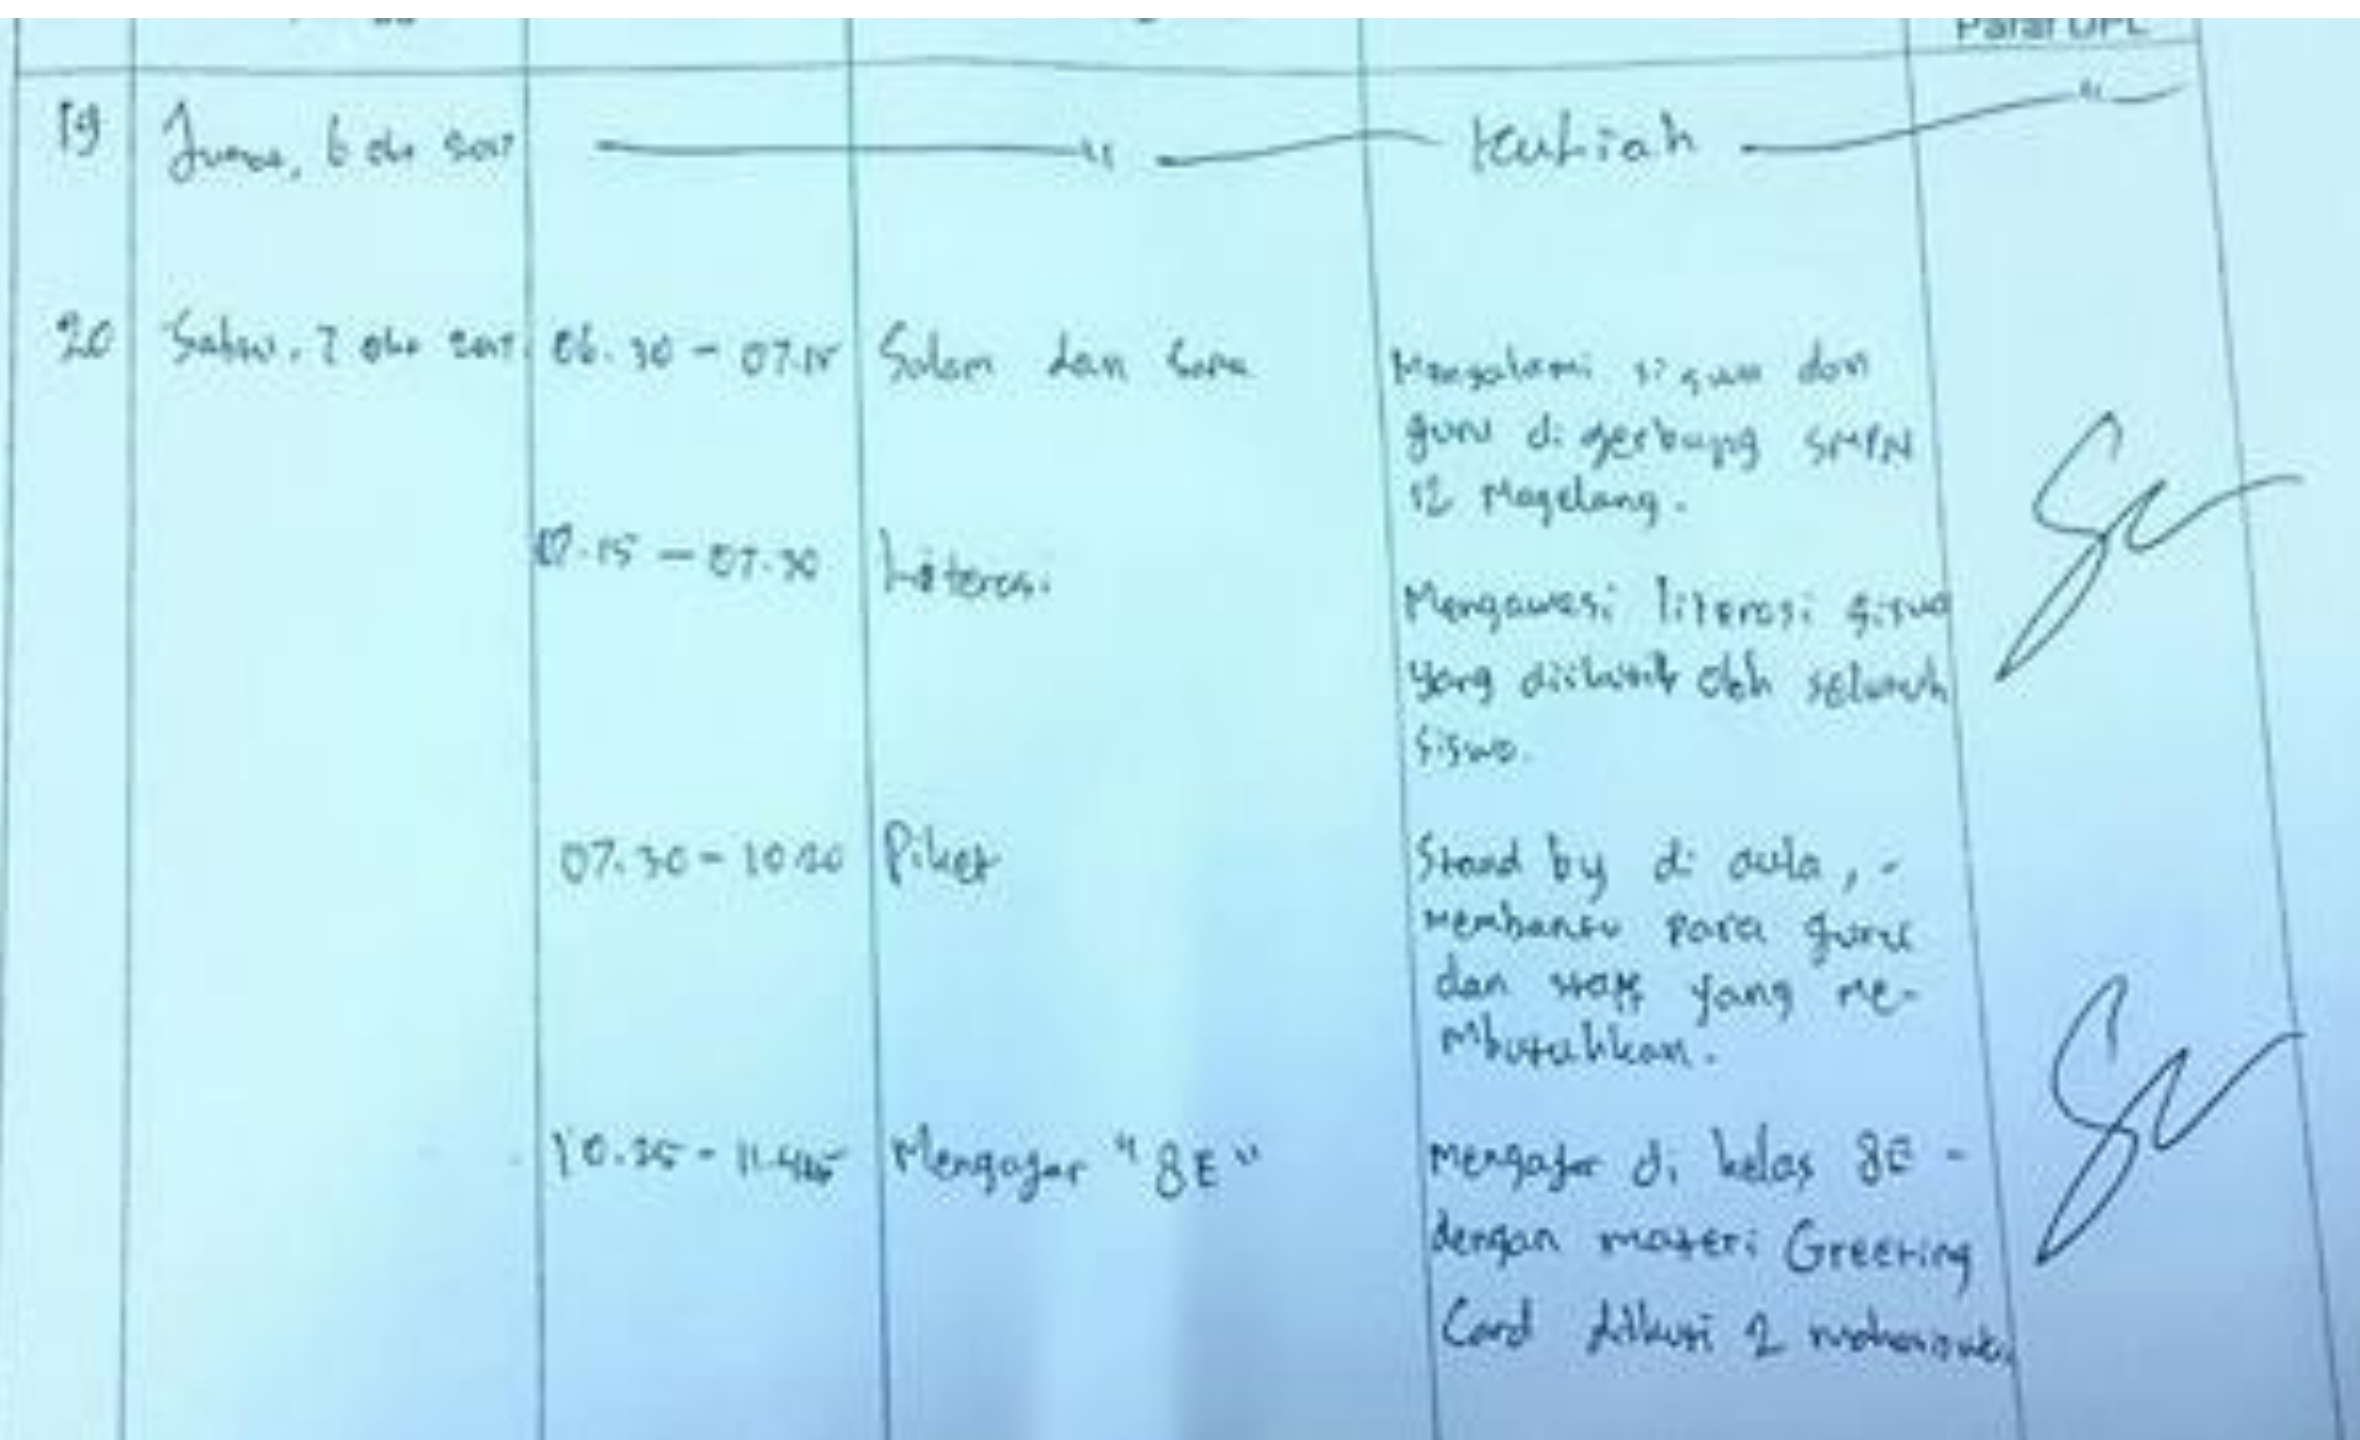 Paraf DPL
19 Jumat, 6 okt 2017 — " — Kuliah — " —
20 Sabtu, 7 okt 2017 06.30 - 07.15 Salam dan Sapa Menyalami siswa dan
guru di gerbang SMPN
12 Magelang.
07.15 - 07.30 Literasi
Mengawasi literasi siswa
yang diikuti oleh seluruh
siswa.
07.30 - 10.20 Piket Stand by di aula, -
membantu para guru
dan staff yang me-
mbutuhkan.
10.25 - 11.45 Mengajar "8E" mengajar di kelas 8E -
dengan materi Greeting
Card diikuti 2 mahasiswa.